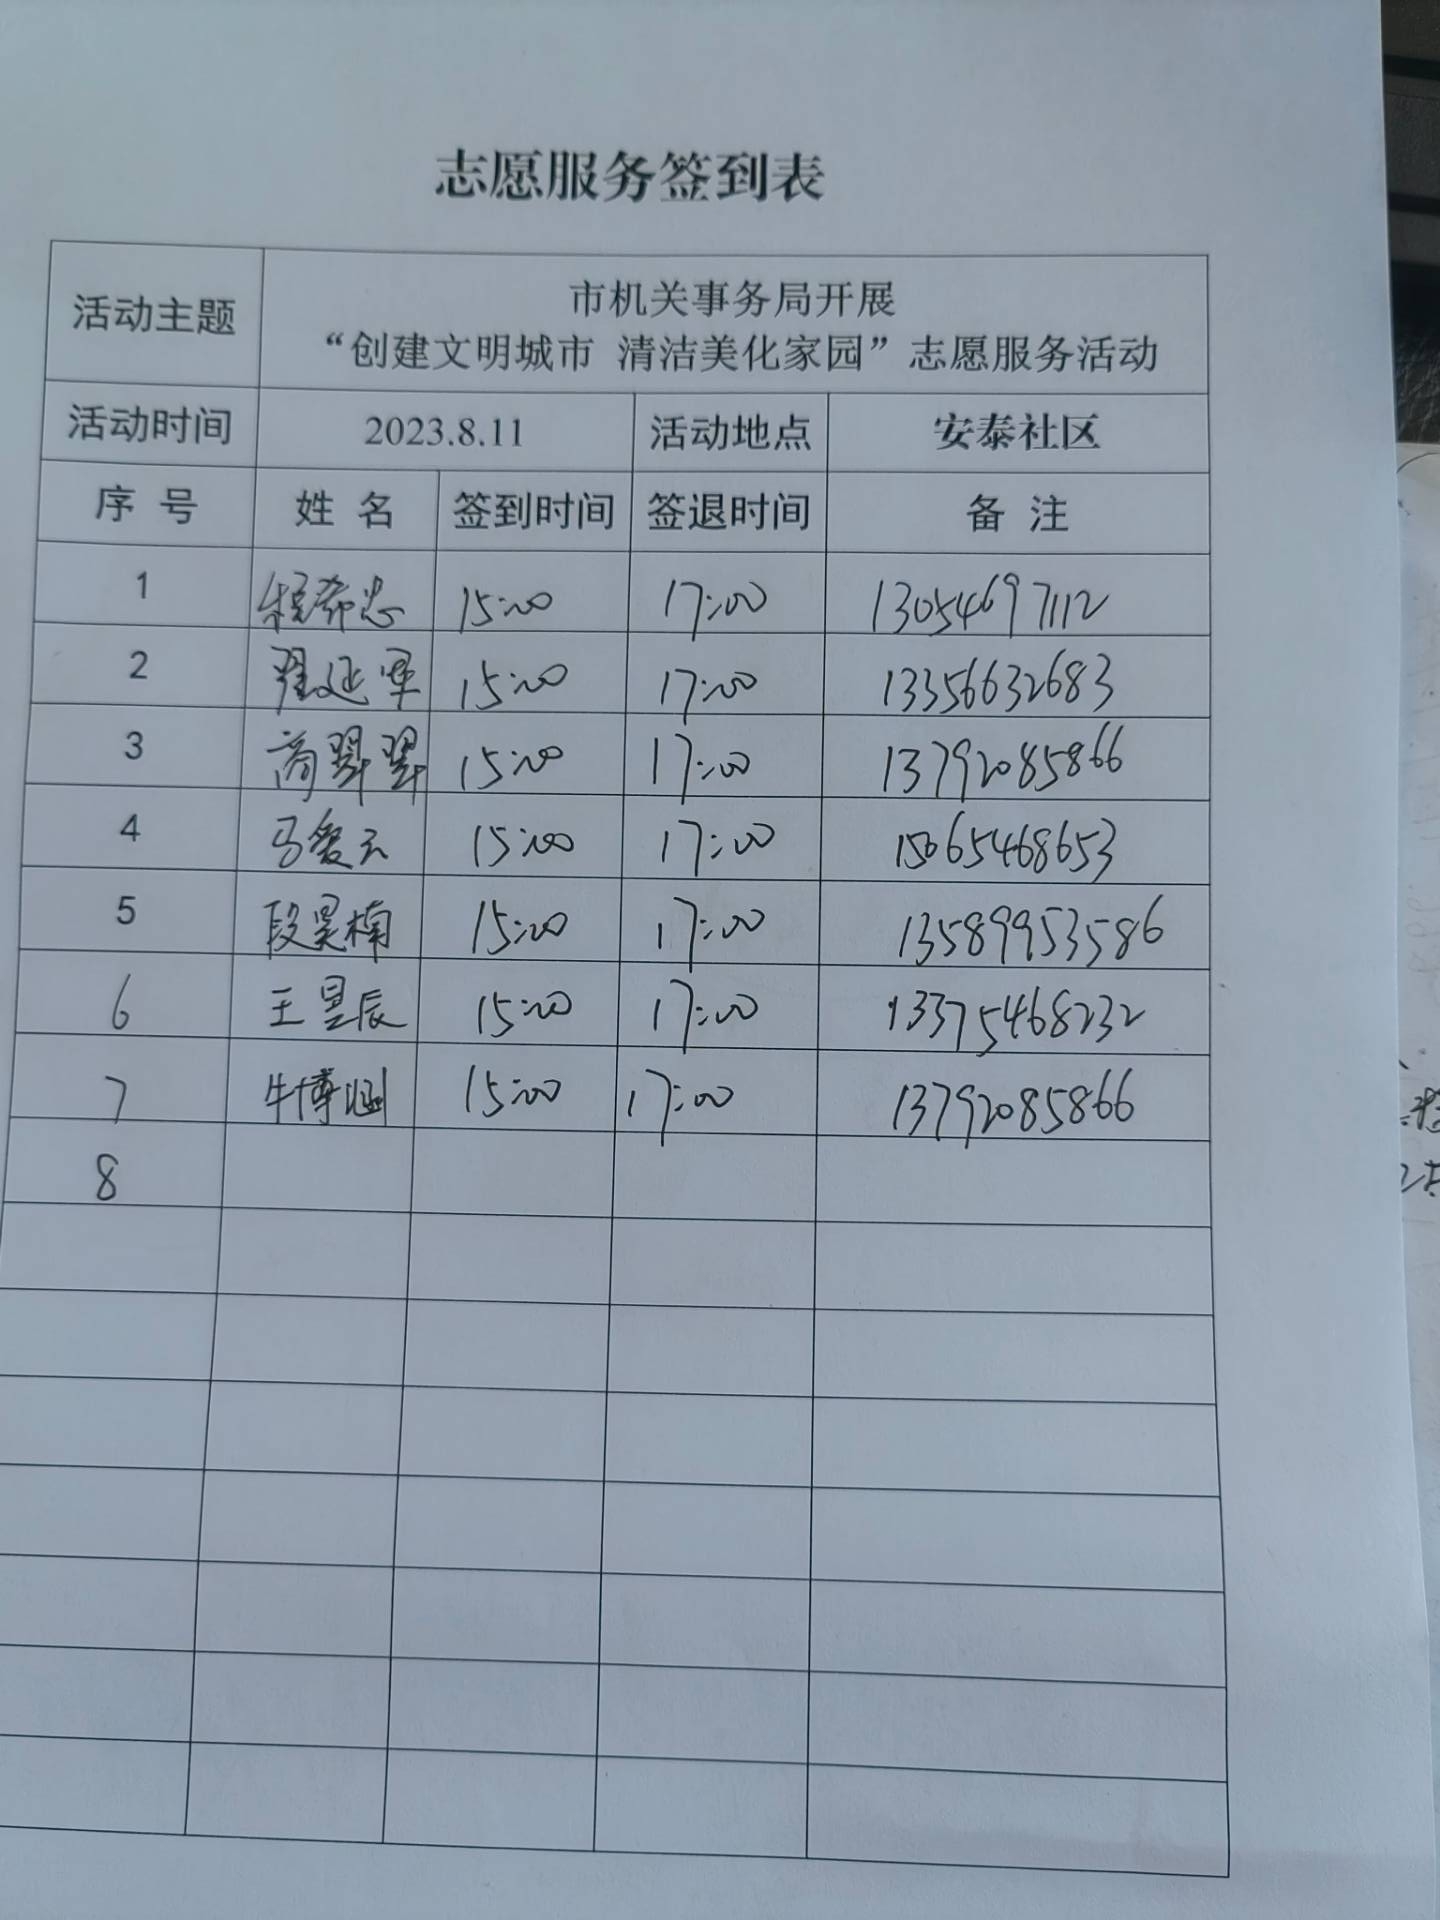 志愿服务签到表
活动主题 市机关事务局开展
“创建文明城市 清洁美化家园”志愿服务活动
活动时间 2023.8.11 活动地点 安泰社区
序 号 姓 名 签到时间 签退时间 备 注
1 15:00 17:00 13054697112
2 翟延军 15:00 17:00 13356632683
3 商翠翠 15:00 17:00 13792085866
4 马爱云 15:00 17:00 15065468653
5 段昊楠 15:00 17:00 13589953586
6 王昱辰 15:00 17:00 13375468232
7 牛博涵 15:00 17:00 13792085866
8